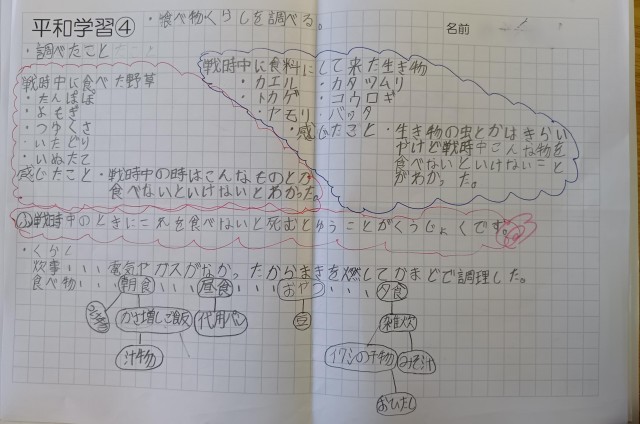 平和学習④
・食べ物くらしを調べる。
名前
・調べたこと
戦時中に食べた野草
・たんぽぽ
・よもぎ
・つゆくさ
・いたどり
・いぬたて
感じたこと・戦時中の時はこんなものとか
食べないといけないとわかった。
戦時中に食料にして来た生き物
・カエル ・カタツムリ
・トカゲ ・コウロギ
・ヤモリ ・バッタ
・感じたこと・生き物の虫とかはきらい
やけど戦時中こんな物を
食べないといけないこと
がわかった。
戦時中のときにこれを食べないと死むとゆうことがくうしゅくです。
・くらし
炊事・・・電気やガスがなかったからまきを燃してかまどで調理した。
食べ物・・・朝食・・・昼食・・・おやつ・・・夕食
かさ増しご飯 代用パン 豆 雑炊
汁物 イワシの干物 みそ汁
おひたし